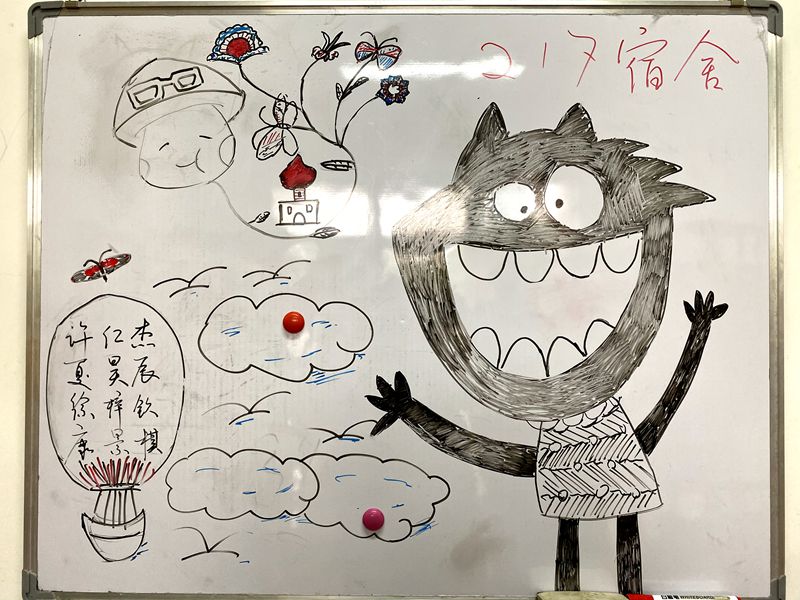 217宿舍
许仁杰
夏昊辰
徐梓钦
康景
WHITEBOARD